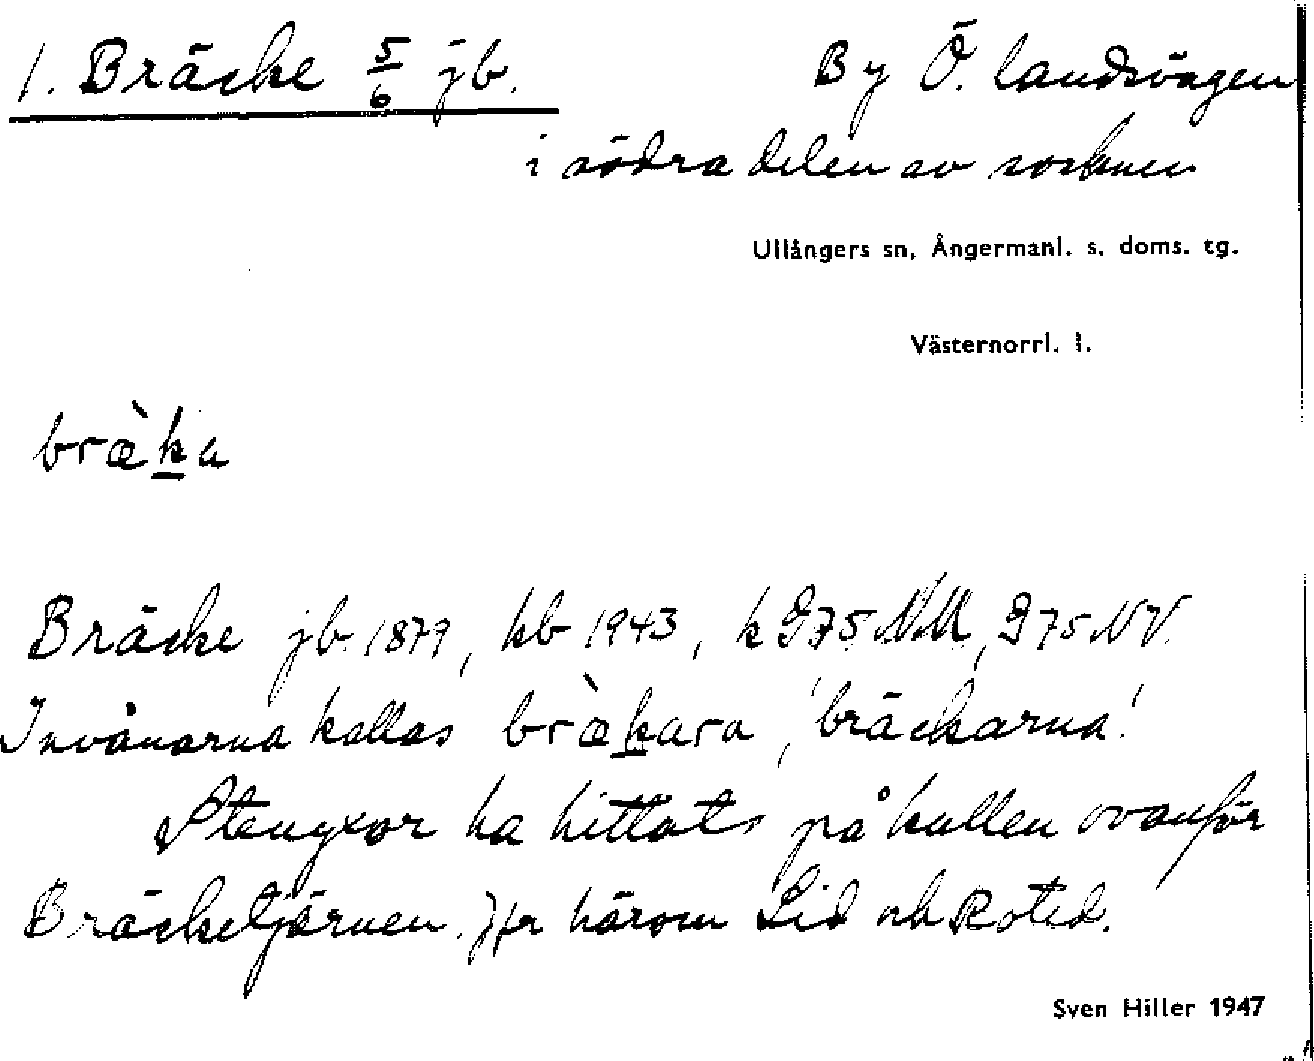 1. Bräcke 5/6 jb. By Ö. landsvägen
i södra delen av socknen
Ullångers sn, Ångermanl. s. doms. tg.
Västernorrl. l.
bræ̀ḵa
Bräcke jb. 1879, kb 1943, k G75 NM, G75 NV.
Invånarna kallas bræ̀ḵara, 'bräckarna'.
Stenyxor ha hittats på kullen ovanför
Bräcketjärnen. Jfr härom Lid och Roted.
Sven Hiller 1947